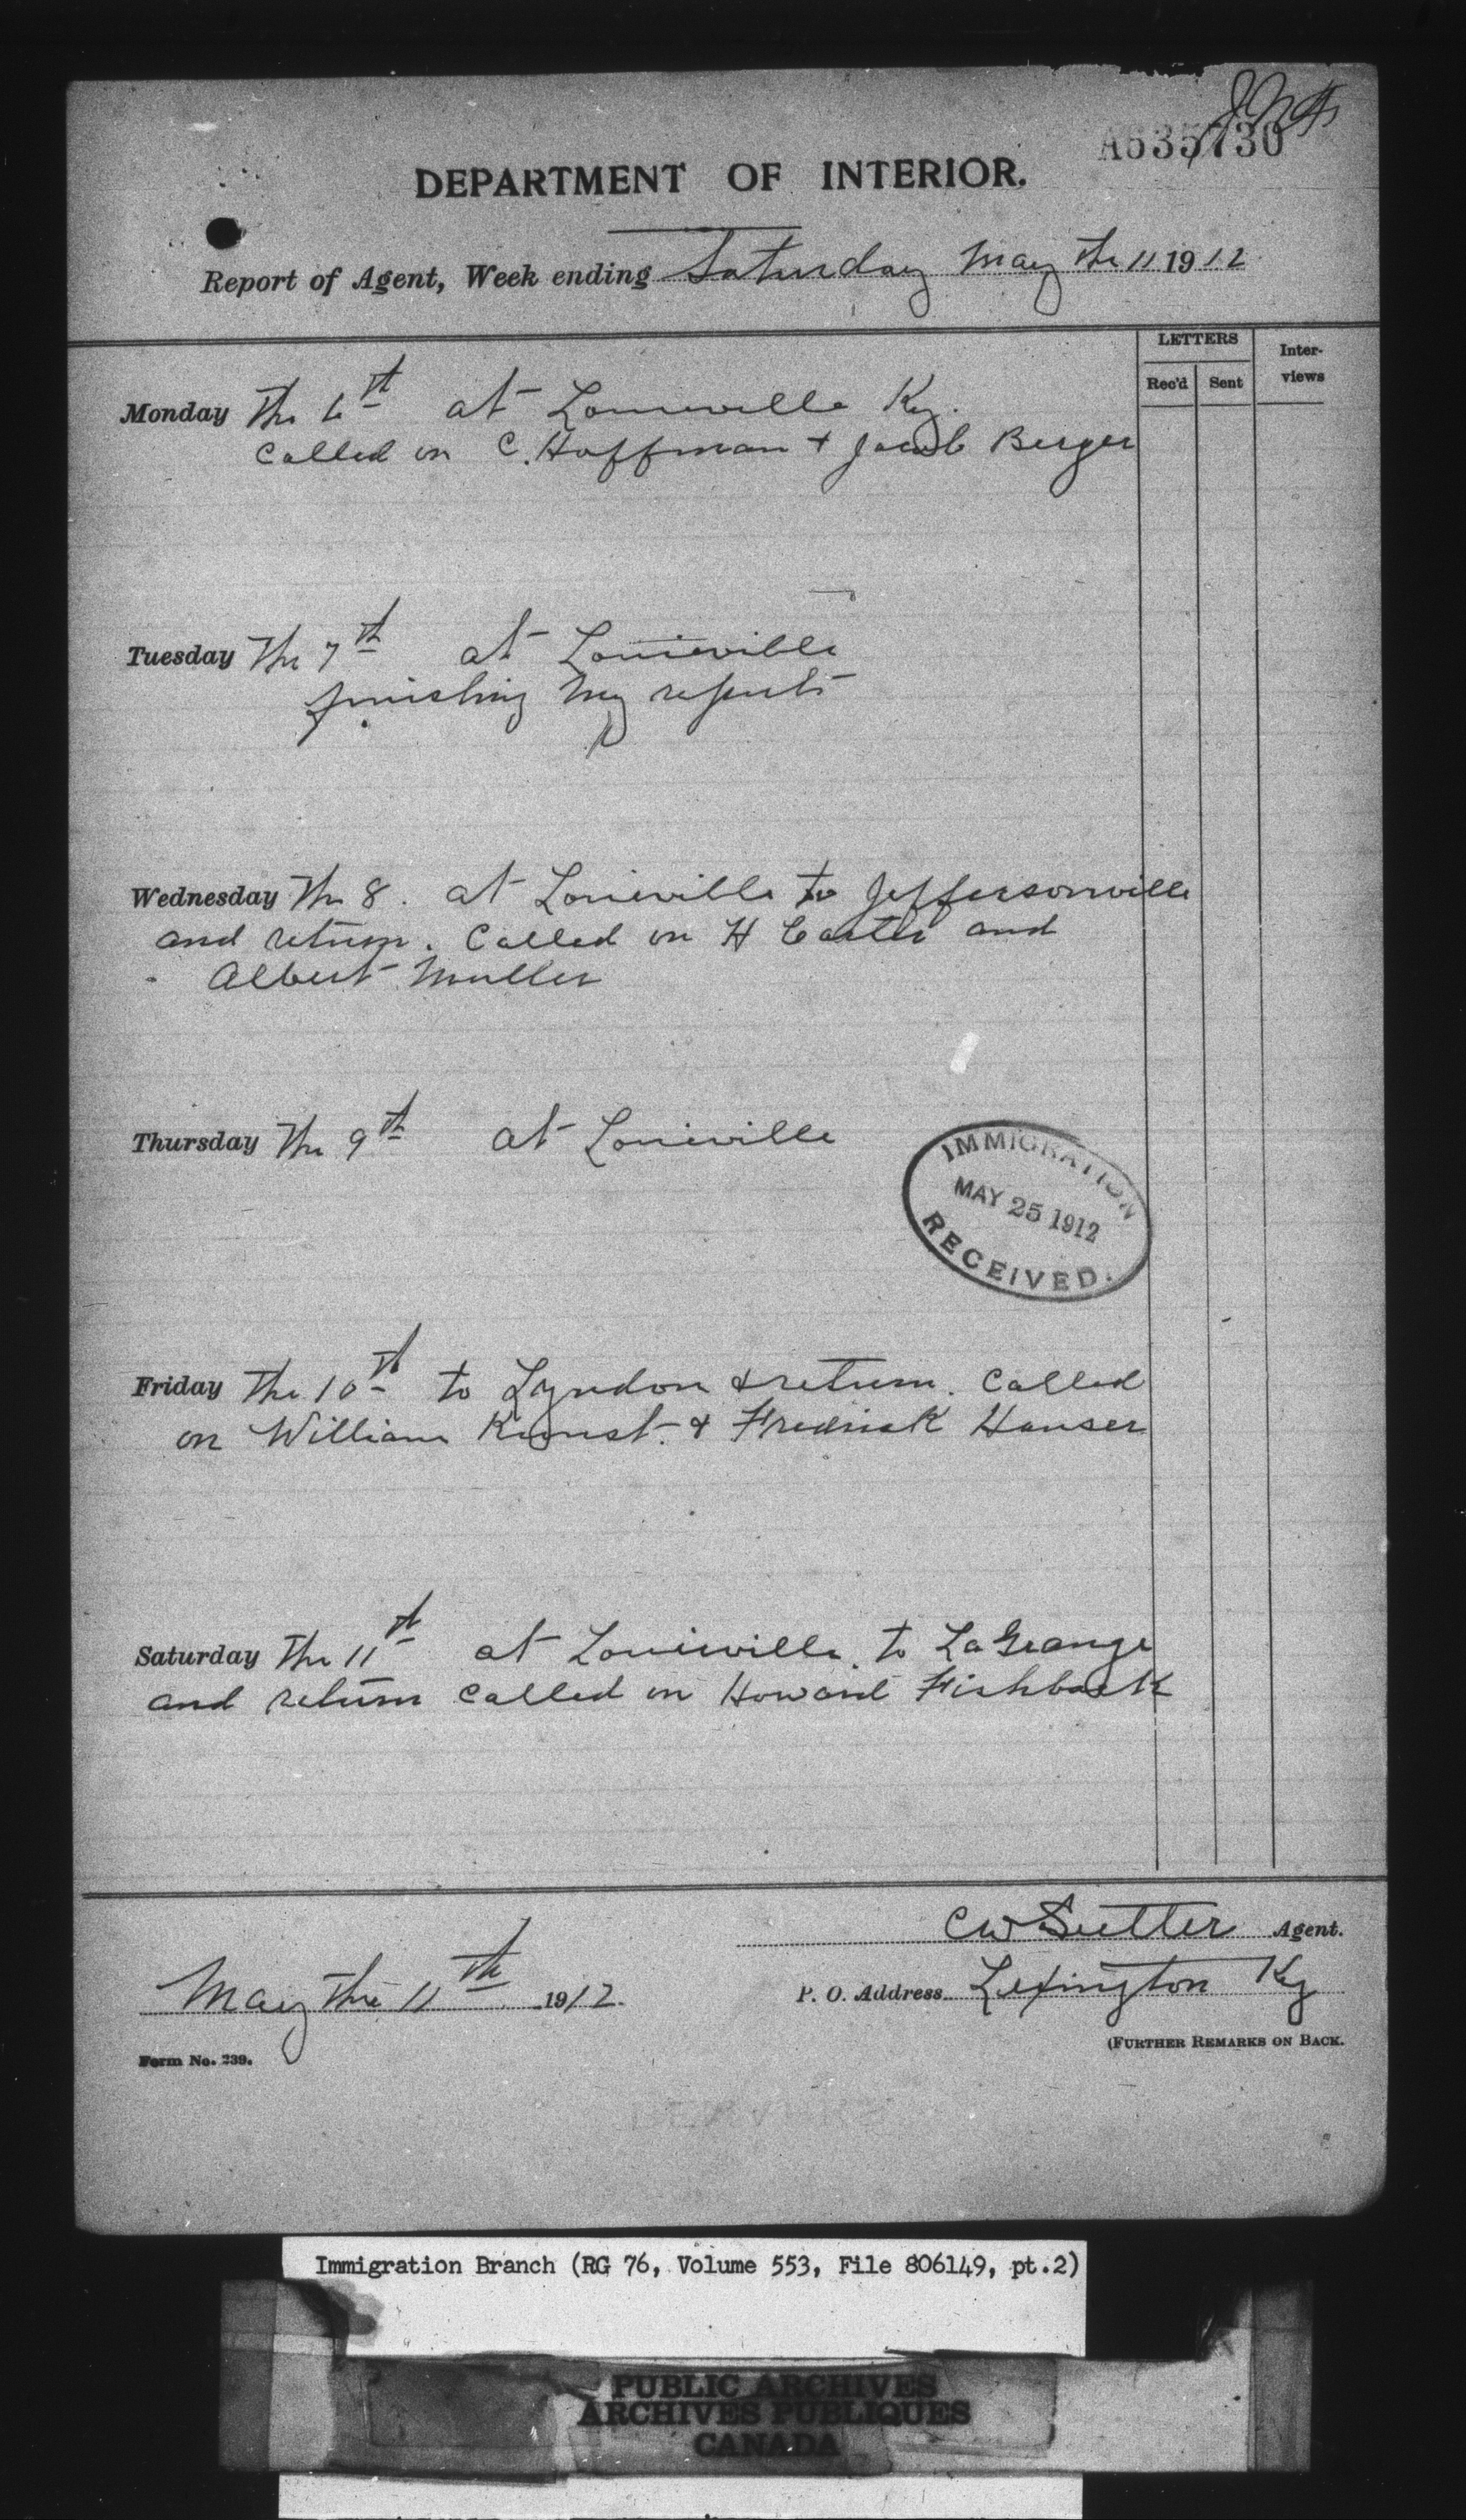 A635730
DEPARTMENT OF INTERIOR.
Report of Agent, Week ending Saturday May the 11 1912
LETTERS
Rec'd Sent
Inter-
views
Monday The 6th at Louieville Ky.
Called on C. Hoffman + Jacob Berger
Tuesday The 7th at Louieville
finishing my reports
Wednesday The 8. at Louieville to Jeffersonville
and return. Called on H Carter and
Albert Muller
Thursday The 9th at Louieville
IMMIGRATION
MAY 25 1912
RECEIVED.
Friday The 10th to Lyndon & return. Called
on William Kunst. & Fredrick Hauser
Saturday The 11th at Louieville. to La Grange
and return Called on Howard Fishback
CW Sutter Agent.
May the 11th 1912.
P. O. Address Lexington Ky
(FURTHER REMARKS ON BACK.
Form No. 239.
Immigration Branch (RG 76, Volume 553, File 806149, pt.2)
PUBLIC ARCHIVES
ARCHIVES PUBLIQUES
CANADA